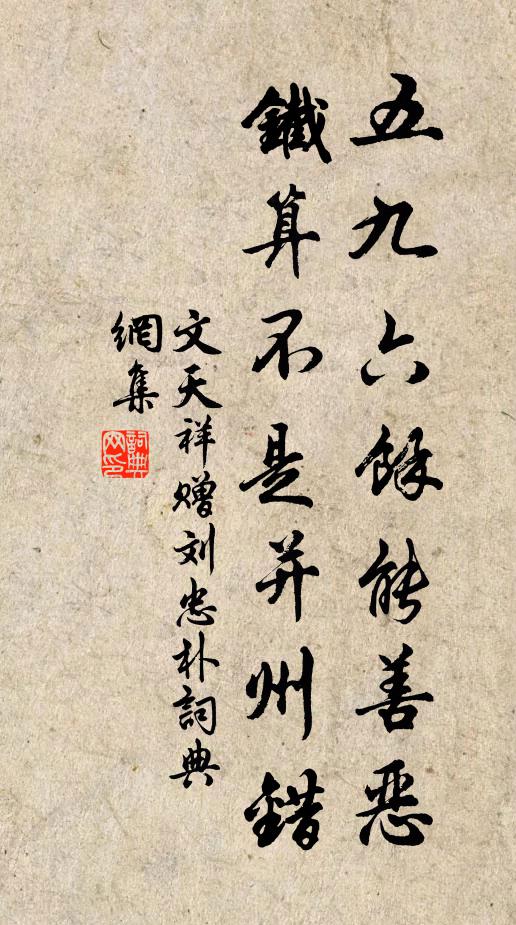 五九六餘能善惡
鐵算不是并州錯
文天祥赠刘忠朴詞典
網集
詞典
网印